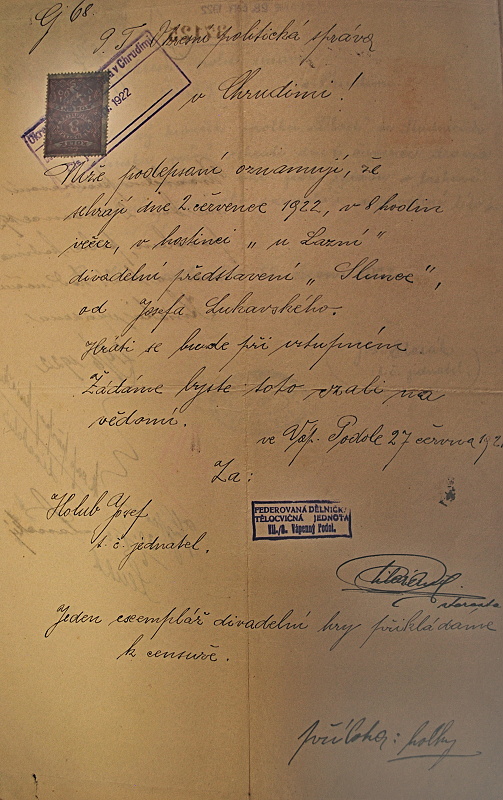 Gj 68.
P. T. Okresní politická správa
v Chrudimi!
v Chrudimi
1922
Níže podepsaní oznamují, že
sehrají dne 2. července 1922, v 8 hodin
večer, v hostinci „u Lázní"
divadelní představení „Slunce",
od Josefa Lukavského.
Hráti se bude při vstupném
Žádáme byste toto vzali na
vědomí.
ve Váp. Podole 27 června 192
Za:
Holub Josef
t. č. jednatel.
FEDEROVANÁ DĚLNICK
TĚLOCVIČNÁ JEDNOTA
VII./8. Vápenný Podol.
starosta
Jeden exemplář divadelní hry přikládáme
k censuře.